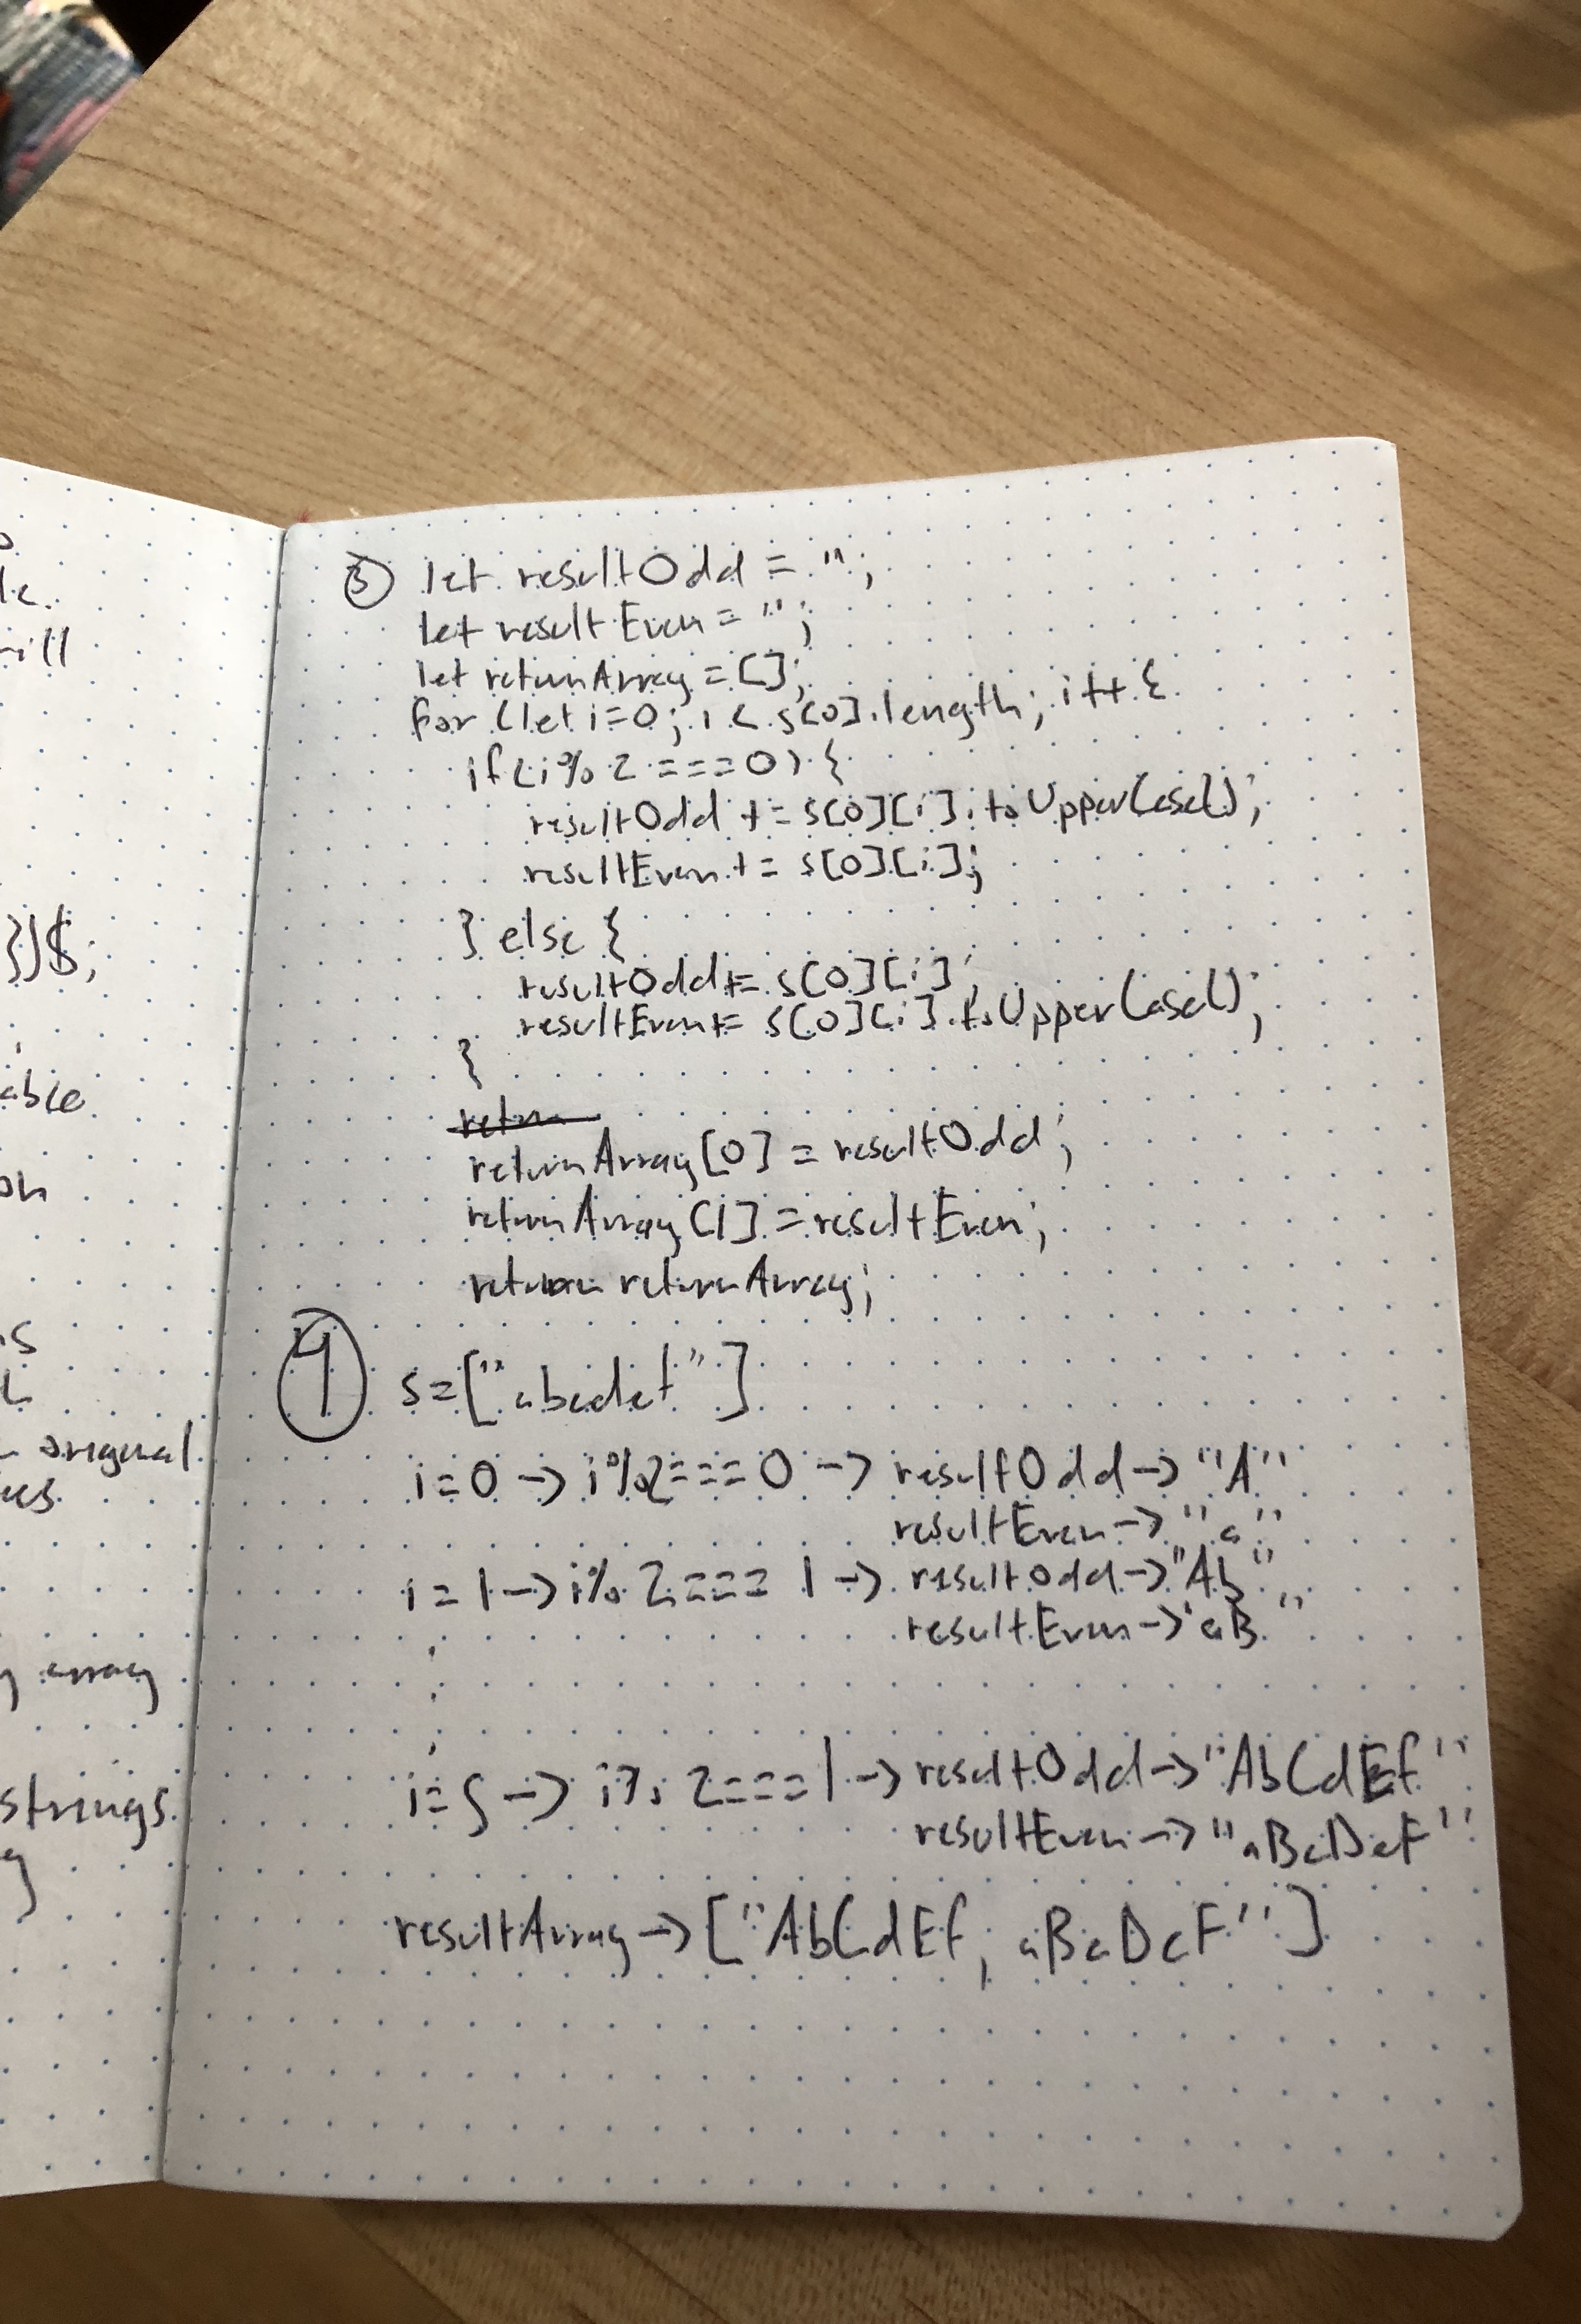 le.
rill
})$;
able
on
original
array
strings
③ let resultOdd = '';
let resultEven = '';
let returnArray = [];
for (let i=0; i < s[0].length; i++ {
if (i % 2 === 0) {
resultOdd += s[0][i].toUpperCase();
resultEven += s[0][i];
} else {
resultOdd += s[0][i];
resultEven += s[0][i].toUpperCase();
}
return
returnArray[0] = resultOdd;
returnArray[1] = resultEven;
return returnArray;
④ s=["abcdef"]
i=0 -> i%2===0 -> resultOdd -> "A"
resultEven -> "a"
i=1 -> i%2===1 -> resultOdd -> "Ab"
resultEven -> "aB"
i=5 -> i%2===1 -> resultOdd -> "AbCdEf"
resultEven -> "aBcDeF"
resultArray -> ["AbCdEf, aBcDeF"]